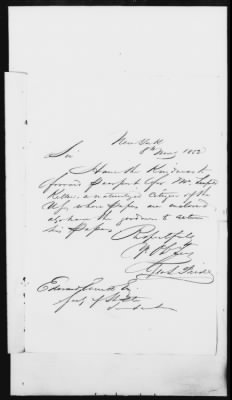 New York
8th 1852
Sir
Have the Kindness to
forward Passport for Mr.
Keller, a naturalized Citizen of the
U.S., whose Papers are enclosed
also have the goodness to return
his Papers
Respectfully
Yr Obt
Edward Everett
Secy of State